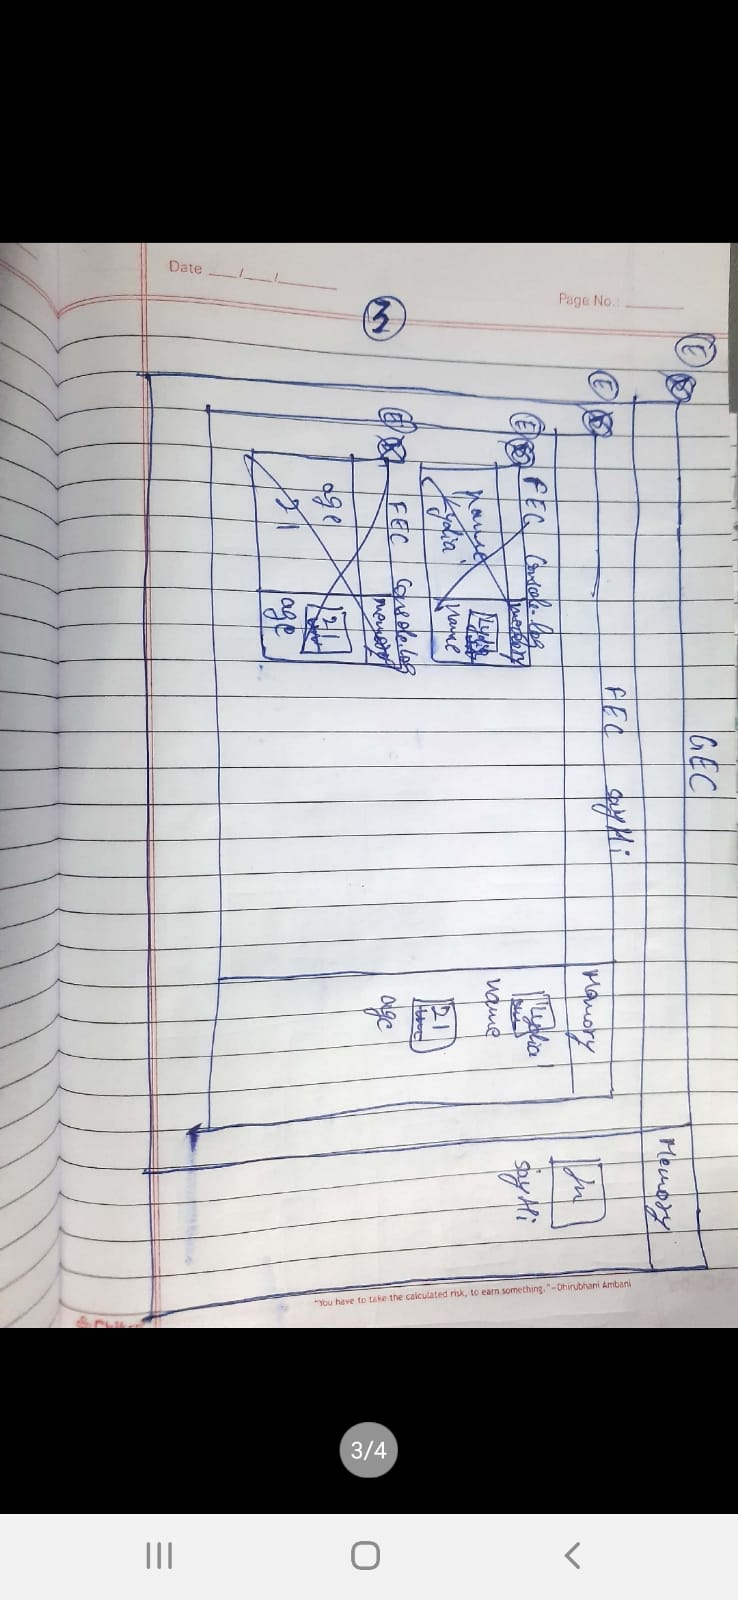 Date ___/___/______
Page No.: ________
3
E
GEC
Memory
fn
sayHi
E
FEC sayHi
Memory
"Lydia'
name
21
age
E
FEC Console.log
memory
name
Lydia'
name
E
FEC Console.log
memory
age
21
21
age
"You have to take the calculated risk, to earn something."-Dhirubhani Ambani
3/4